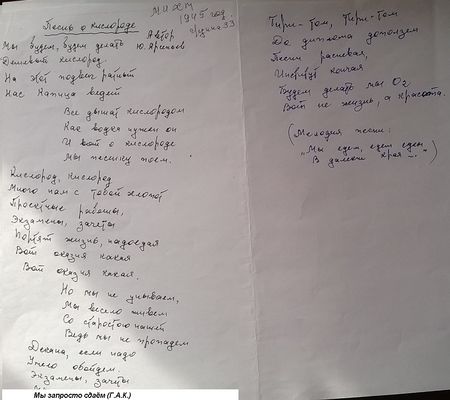 Песнь о кислороде
МИХМ
1945 год.
группа 33
Автор
Ю. Арсеньев
Мы будем, будем делать
Дешевый кислород.
На этот подвиг ратный
Нас Капица ведёт
Все дышат кислородом
Как воздух нужен он
И вот о кислороде
Мы песенку поем.
Кислород, кислород
Много нам с тобой хлопот
Проектные работы,
Экзамены, зачеты
Портят жизнь, надоедая
Вот оказия какая
Вот оказия какая.
Но мы не унываем,
Мы весело живем
Со старостою нашей
Ведь мы не пропадем
Декана, если надо
Умело обойдем.
Экзамены, зачеты
Мы запросто сдаём (Г.А.К.)
Тири-том, Тири-том
До диплома доползем
Песни распевая,
Институт кончая
Будем делать мы O2
Вот не жизнь, а красота.
(Мелодия песни:
"Мы едем, едем, едем
В далекие края ...")